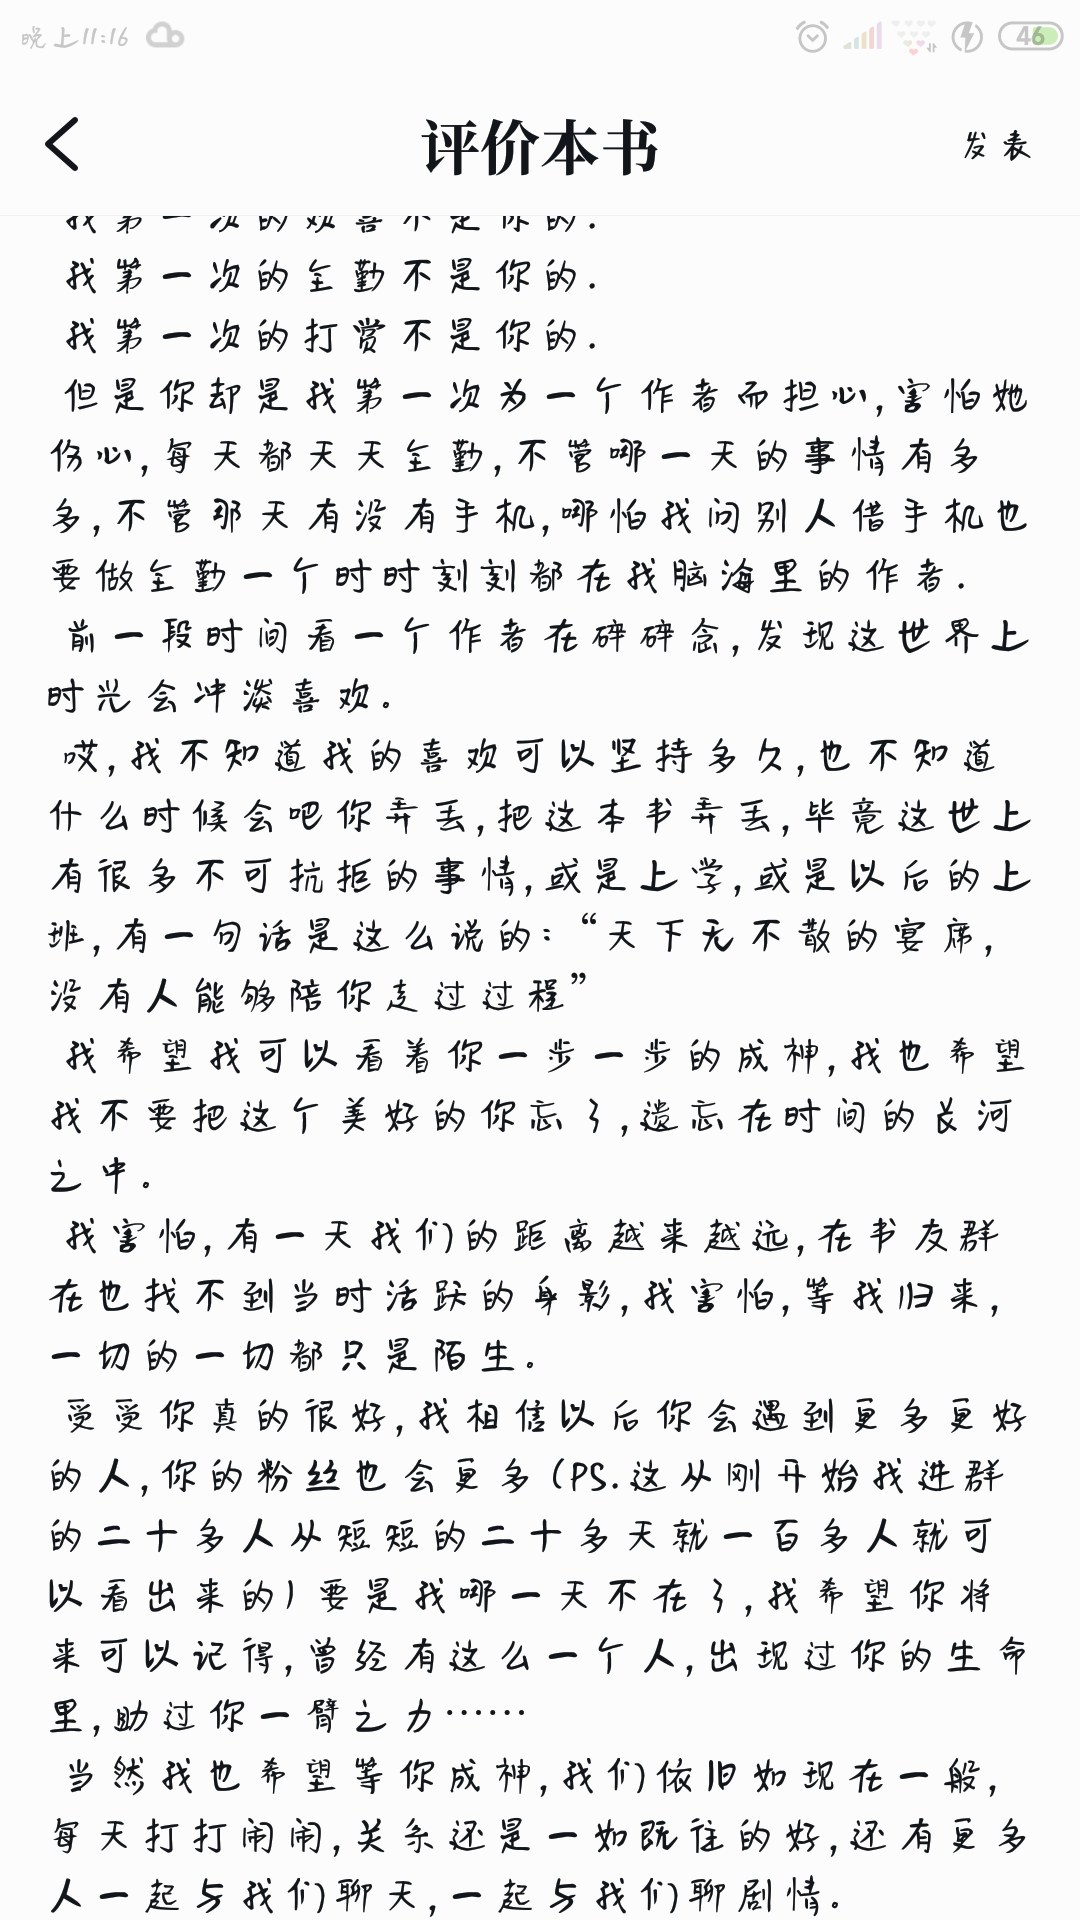 晚上11:16
46
评价本书
发表
我第一次的欢喜不是你的.
我第一次的全勤不是你的.
我第一次的打赏不是你的.
但是你却是我第一次为一个作者而担心,害怕她
伤心,每天都天天全勤,不管哪一天的事情有多
多,不管那天有没有手机,哪怕我问别人借手机也
要做全勤一个时时刻刻都在我脑海里的作者.
前一段时间看一个作者在碎碎念,发现这世界上
时光会冲淡喜欢。
哎,我不知道我的喜欢可以坚持多久,也不知道
什么时候会吧你弄丢,把这本书弄丢,毕竟这世上
有很多不可抗拒的事情,或是上学,或是以后的上
班,有一句话是这么说的:“天下无不散的宴席,
没有人能够陪你走过过程”
我希望我可以看着你一步一步的成神,我也希望
我不要把这个美好的你忘了,遗忘在时间的长河
之中。
我害怕,有一天我们的距离越来越远,在书友群
在也找不到当时活跃的身影,我害怕,等我归来,
一切的一切都只是陌生。
受受你真的很好,我相信以后你会遇到更多更好
的人,你的粉丝也会更多(PS.这从刚开始我进群
的二十多人从短短的二十多天就一百多人就可
以看出来的)要是我哪一天不在了,我希望你将
来可以记得,曾经有这么一个人,出现过你的生命
里,助过你一臂之力……
当然我也希望等你成神,我们依旧如现在一般,
每天打打闹闹,关系还是一如既往的好,还有更多
人一起与我们聊天,一起与我们聊剧情。